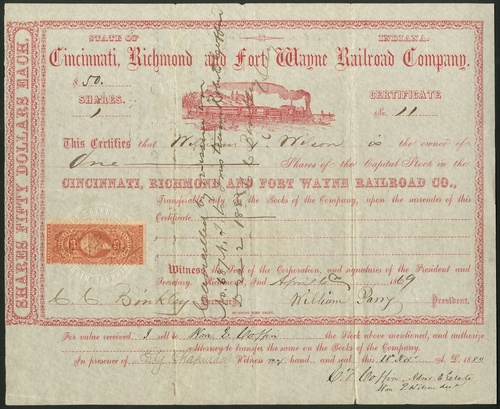 STATE OF INDIANA.
Cincinnati, Richmond and Fort Wayne Railroad Company.
$ 50.
SHARES.
1
CERTIFICATE
No. 11
SHARES FIFTY DOLLARS EACH.
This Certifies that William Wilson is the owner of
One Shares of the Capital Stock in the
CINCINNATI, RICHMOND AND FORT WAYNE RAILROAD CO.,
Transferable only on the Books of the Company, upon the surrender of this
Certificate.
Witness the Seal of the Corporation, and signatures of the President and
Secretary. Richmond, Ind April 1869
C. C. Binkley
William Parry
President.
For value received I sell to Wm. E. Coffin the Stock above mentioned, and authorize
Attorney to transfer the same on the Books of the Company.
In presence of Witness my hand and seal this 18 Nov. A. D. 188
C. F. Coffin Admr Estate
Wm. Wilson